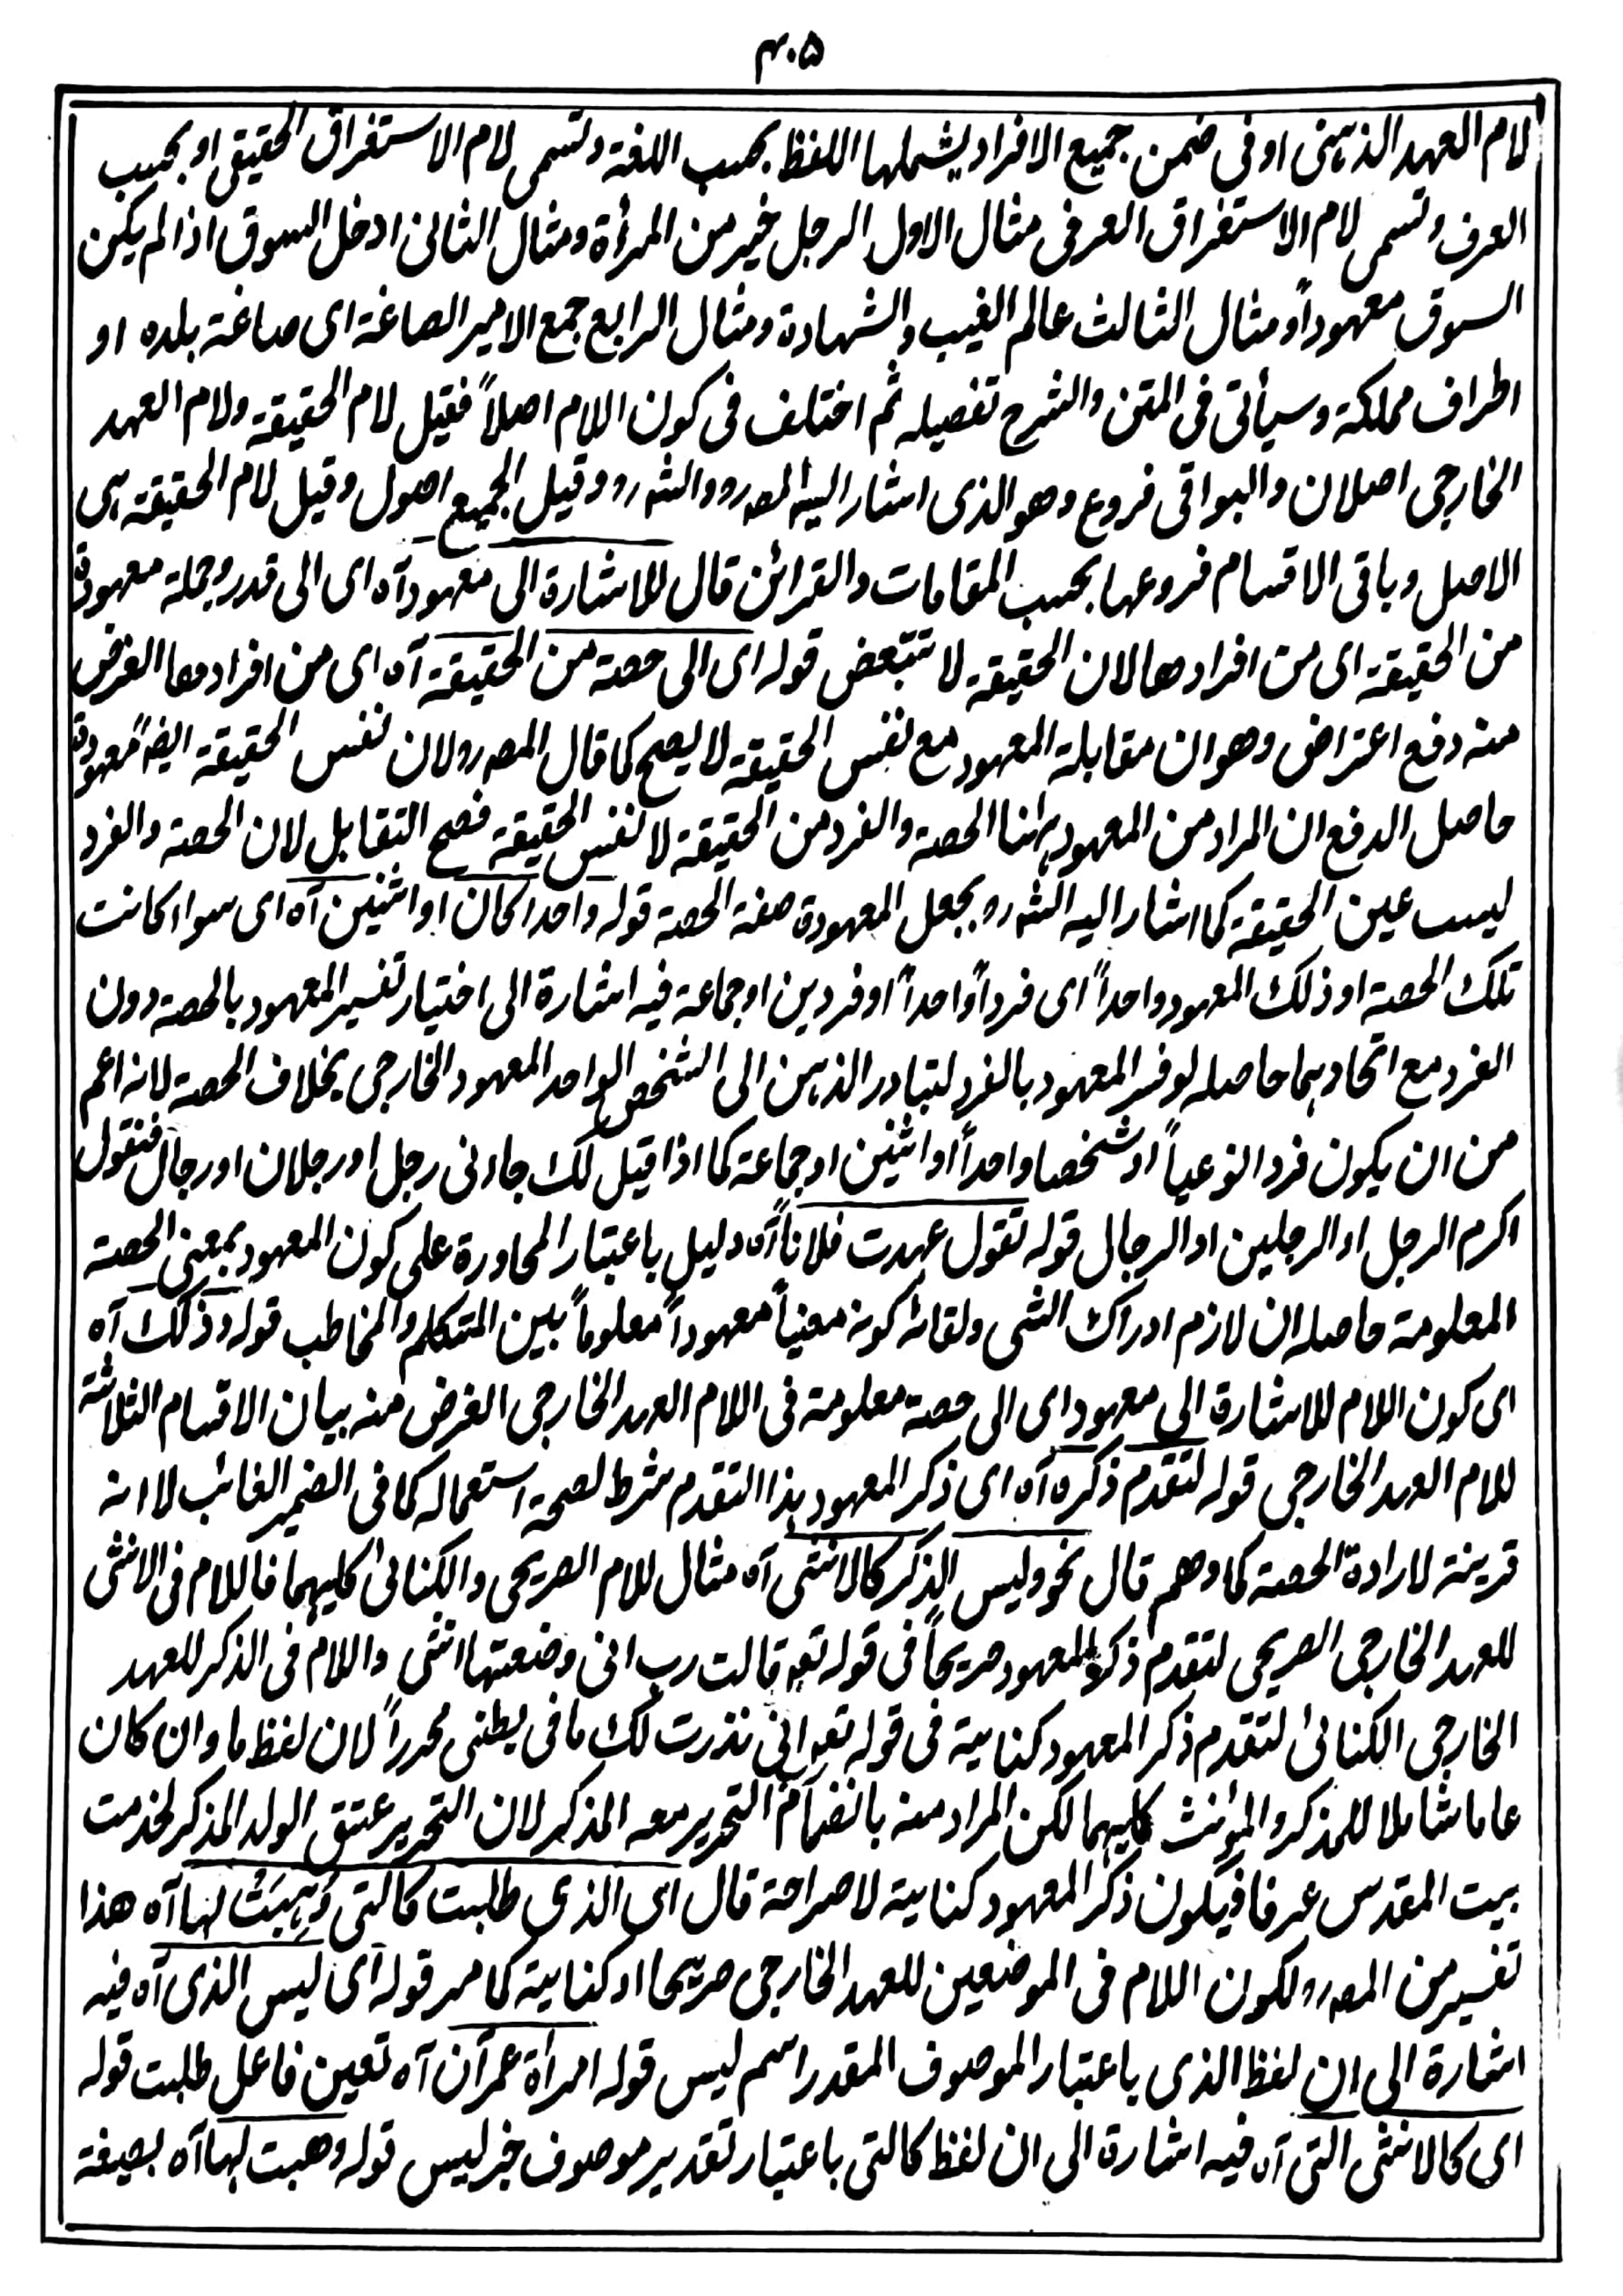 ۴۰۵
لام العهد الذہنی او فی ضمن جمیع الافراد یشملها اللفظ بحسب اللغة وتسمی لام الاستغراق الحقیقی او بحسب
العرف وتسمی لام الاستغراق العرفی مثال الاول الرجل خیر من المرأة ومثال الثانی ادخل السوق اذا لم یکن
السوق معهوداً ومثال الثالث عالم الغیب والشهادة ومثال الرابع جمع الامیر الصاغة ای صاغة بلده او
اطراف مملکة وسیأتی فی المتن والشرح تفصیله ثم اختلف فی کون اللام اصلاً فقیل لام الحقیقة ولام العهد
الخارجی اصلان والبواقی فروع وهو الذی اشار الیه المصہ رہ والشہ رہ وقیل الجمیع اصول وقیل لام الحقیقة ہی
الاصل وباقی الاقسام فروعها بحسب المقامات والقرائن قال للاشارة الی معهود آہ ای الی قدر وجملة معهودة
من الحقیقة ای من افرادها لان الحقیقة لا تتبعض قوله ای الی حصة من الحقیقة آہ ای من افرادها الغرض
منه دفع اعتراض وهو ان مقابلة المعهود مع نفس الحقیقة لا یصح کما قال المصہ رہ لان نفس الحقیقة ایضاً معهودة
حاصل الدفع ان المراد من المعهود ہٰہنا الحصة والفرد من الحقیقة لا نفس الحقیقة فصح التقابل لان الحصة والفرد
لیست عین الحقیقة کما اشار الیه الشہ رہ بجعل المعهودة صفة الحصة قوله واحدا کان او اثنین آہ ای سواء کانت
تلک الحصة او ذلک المعهود واحداً ای فرداً واحداً او فردین او جماعة فیه اشارة الی اختیار تفسیر المعهود بالحصة دون
الفرد مع اتحادہما حاصله لو فسر المعهود بالفرد لتبادر الذہن الی الشخص الواحد المعهود الخارجی بخلاف الحصة لانه اعم
من ان یکون فردا نوعیاً او شخصا واحداً او اثنین او جماعة کما اذا قیل لک جاءنی رجل او رجلان او رجال فتقول
اکرم الرجل او الرجلین او الرجال قوله تقول عهدت فلاناً آہ دلیل باعتبار المحاورة علی کون المعهود بمعنی الحصة
المعلومة حاصله ان لازم ادراک الشی ولقائه کونه معیناً معهوداً معلوماً بین المتکلم والمخاطب قوله وذلک آہ
ای کون اللام للاشارة الی معهود ای الی حصة معلومة فی اللام العهد الخارجی الغرض منه بیان الاقسام الثلاثة
للام العهد الخارجی قوله لتقدم ذکره آہ ای ذکر المعهود ہذا التقدم شرط لصحة استعماله کما فی الضمیر الغائب لا انه
قرینة لارادة الحصة کما وهم قال نحو ولیس الذکر کالانثی آہ مثال للام الصریحی والکنائی کلیہما فاللام فی الانثی
للعهد الخارجی الصریحی لتقدم ذکر المعهود صریحاً فی قوله تعہ قالت رب انی وضعتها انثی واللام فی الذکر للعهد
الخارجی الکنائی لتقدم ذکر المعهود کنایة فی قوله تعہ انی نذرت لک ما فی بطنی محرراً لان لفظ ما وان کان
عاما شاملا للمذکر والمؤنث کلیہما لکن المراد منه بانضمام التحریر معه المذکر لان التحریر عتق الولد المذکر لخدمت
بیت المقدس عرفا فیکون ذکر المعهود کنایة لا صراحة قال ای الذی طلبت کالتی وُہِبَتْ لہا آہ هذا
تفسیر من المصہ رہ لکون اللام فی الموضعین للعهد الخارجی صریحا او کنایة کما مر قوله ای لیس الذی آہ فیه
اشارة الی ان لفظ الذی باعتبار الموصوف المقدر اسم لیس قوله امرأة عمران آہ تعین فاعل طلبت قوله
ای کالانثی التی آہ فیه اشارة الی ان لفظ کالتی باعتبار تقدیر موصوف خبر لیس قوله وهبت لہا آہ بصیغة